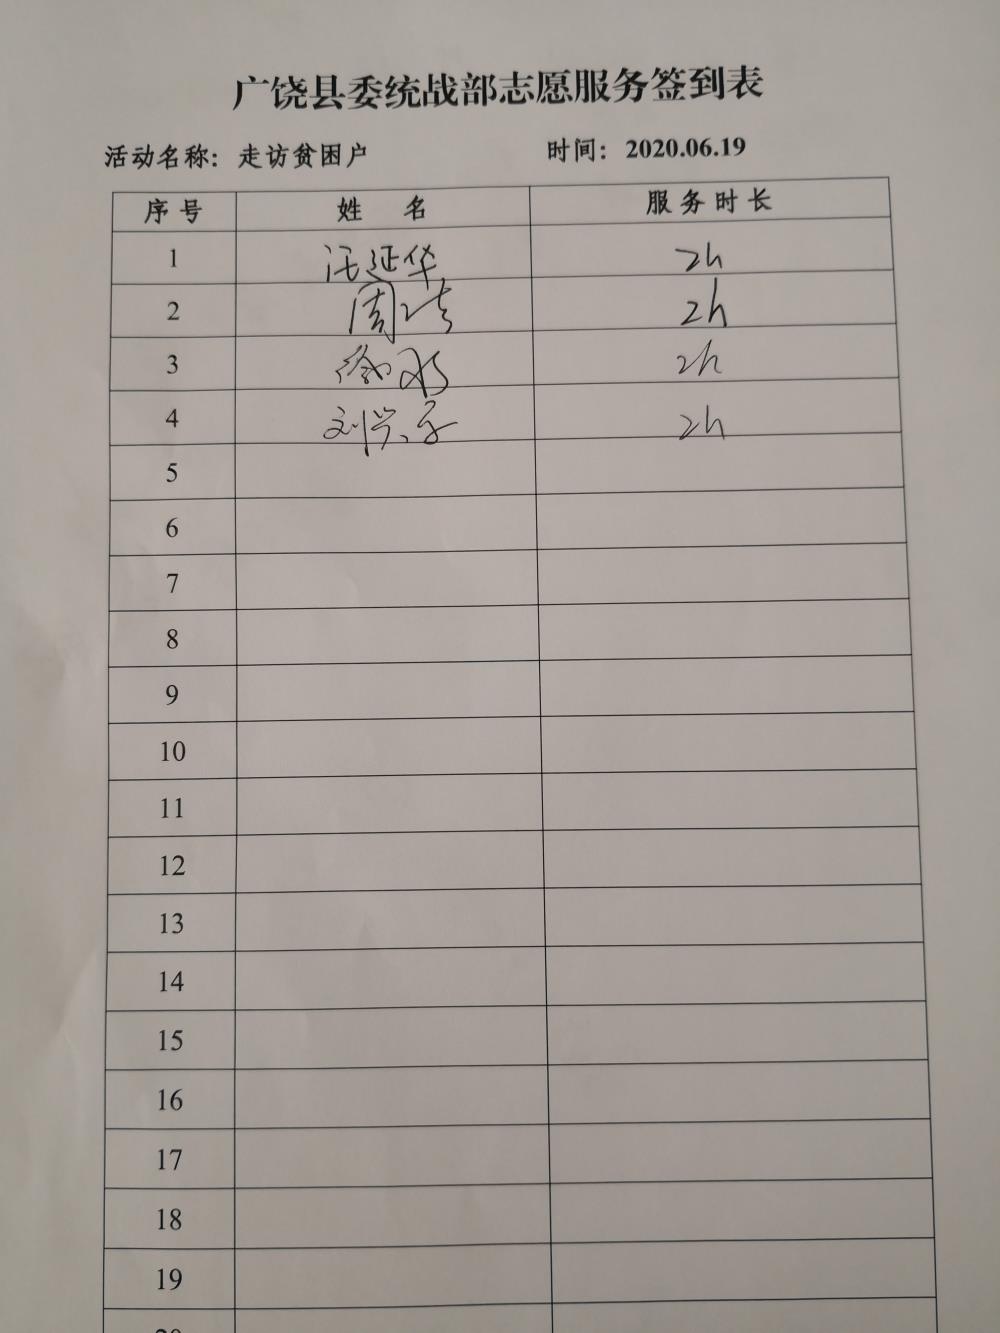 广饶县委统战部志愿服务签到表
活动名称：走访贫困户 时间：2020.06.19
序号 姓 名 服务时长
1 汪延华 2h
2 周 2h
3 徐 2h
4 刘兴 2h
5
6
7
8
9
10
11
12
13
14
15
16
17
18
19
20